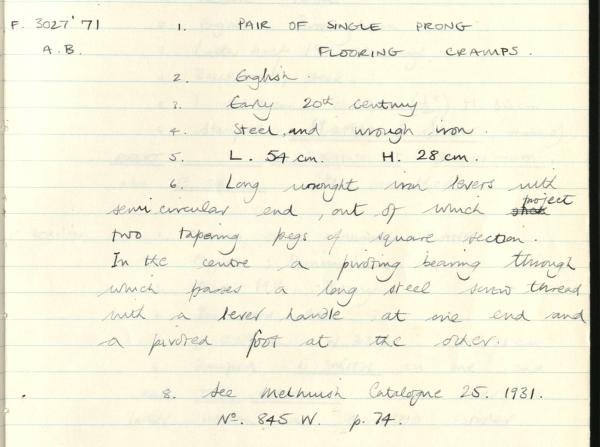 F. 3027'71 1. PAIR OF SINGLE PRONG
A.B. FLOORING CRAMPS.
2. English.
3. Early 20th century
4. Steel, and wrough iron.
5. L. 54 cm. H. 28 cm.
6. Long wrought iron levers with
semi circular end, out of which project
two tapering pegs of square section.
In the centre a pivoting bearing through
which passes a long steel screw thread
with a lever handle at one end and
a pivoted foot at the other.
8. See Melhuish Catalogue 25. 1931.
No. 845 W. p. 74.